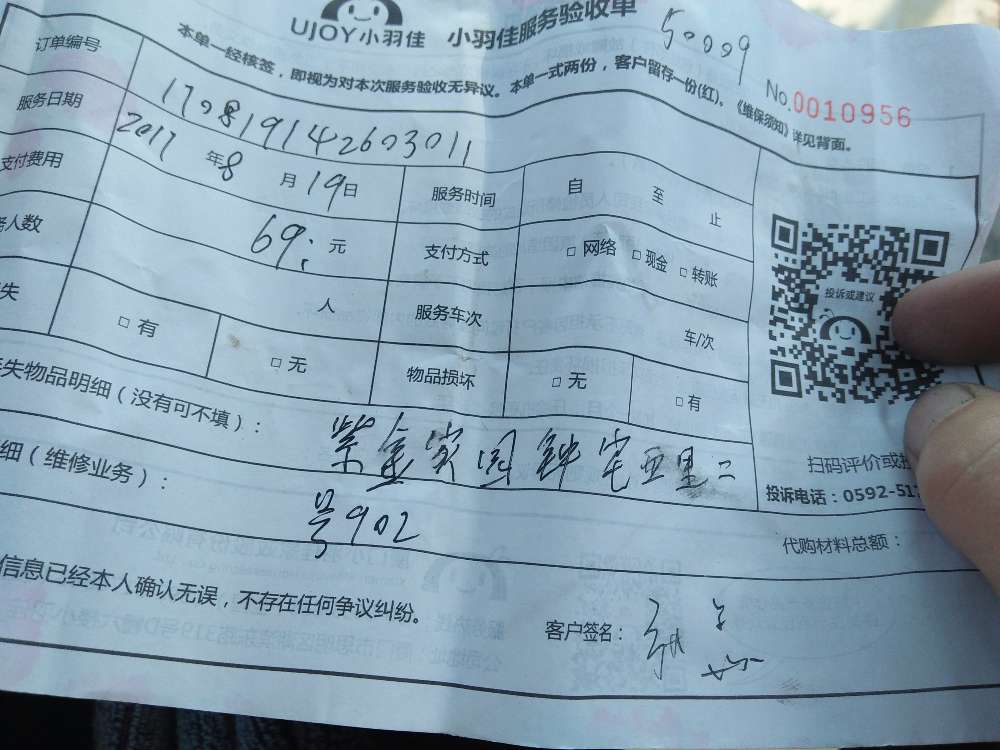 UJOY小羽佳 小羽佳服务验收单
50009
本单一经核签，即视为对本次服务验收无异议。本单一式两份，客户留存一份(红)。《维保须知》详见背面。
No.0010956
订单编号 170819142603011
服务日期 2017年8月19日 服务时间 自 至 止
支付费用 69：元 支付方式 □ 网络 □ 现金 □ 转账
人数 人 服务车次 车/次
失 □ 有 □ 无 物品损坏 □ 无 □ 有
投诉或建议
失物品明细（没有可不填）： 紫金家园钟宅西里二
细（维修业务）： 号902
扫码评价或
投诉电话：0592-51
代购材料总额：
信息已经本人确认无误，不存在任何争议纠纷。
客户签名：